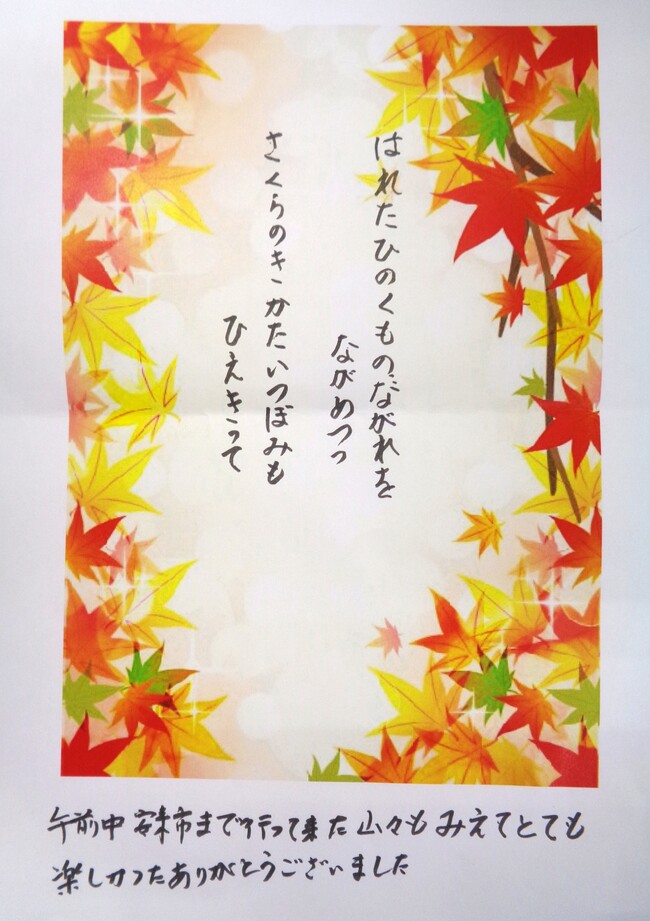 はれたひのくものながれを
ながめつつ
さくらのききかたいつぼみも
ひえきって
午前中安来市まで行って来た山々もみえてとても
楽しかったありがとうございました